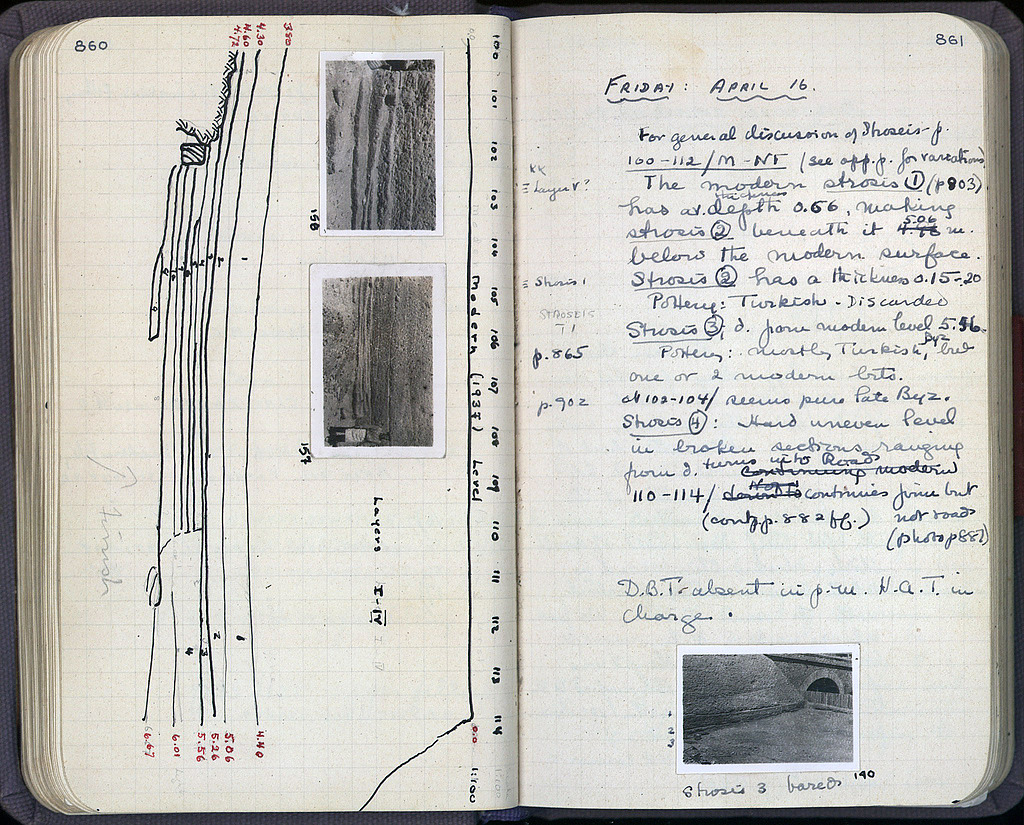 860
3.50
4.30
4.60
4.72
100
101
102
103
104
105
106
107
108
109
110
111
112
113
114
Modern (1937) Level
158
157
1
2
3
4
Layers I-IV
trench
1
2
3
4
4.40
5.06
5.26
5.56
6.01
6.67
0.0
1:100
861
FRIDAY: APRIL 16.
For general discussion of Stroseis - p.
100-112/M-NT (see opp. p. for variations)
xx
= Layer V?
The modern strosis ① (p 903)
thickness
has av. depth 0.66, making
5.06
strosis ② beneath it m.
below the modern surface.
= Strosis 1
Strosis ② has a thickness 0.15-.20
Pottery: Turkish - Discarded
STROSEIS
T 1
Strosis ③, d. from modern level 5.56.
p. 865
Pottery: mostly Turkish, Byz but
one or 2 modern bits.
p. 902
at 102-104/ seems pure Late Byz.
Strosis ④: Hard uneven level
in broken sections, ranging
from d. turns into Road
continuing modern
110-114/ down to continues fine but
(cont. p. 882 ff.) not road
(photo p 887)
D.B.T. absent in p.m. H.A.T. in
charge.
1
2
3
140
Strosis 3 bared